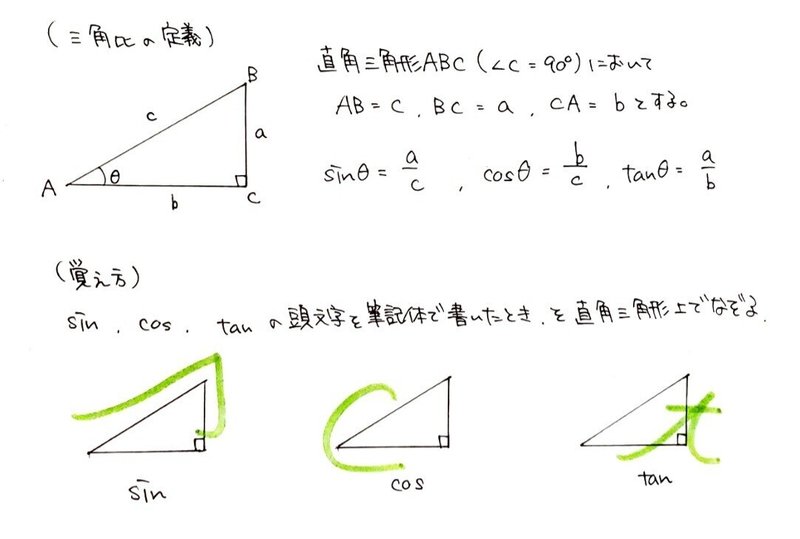 (三角比の定義)
直角三角形ABC(∠C=90°)において
AB=c, BC=a, CA=bとする。
sinθ=a/c, cosθ=b/c, tanθ=a/b
B
c
a
A
θ
b
C
(覚え方)
sin, cos, tanの頭文字を筆記体で書いたとき、を直角三角形上でなぞる.
sin
cos
tan